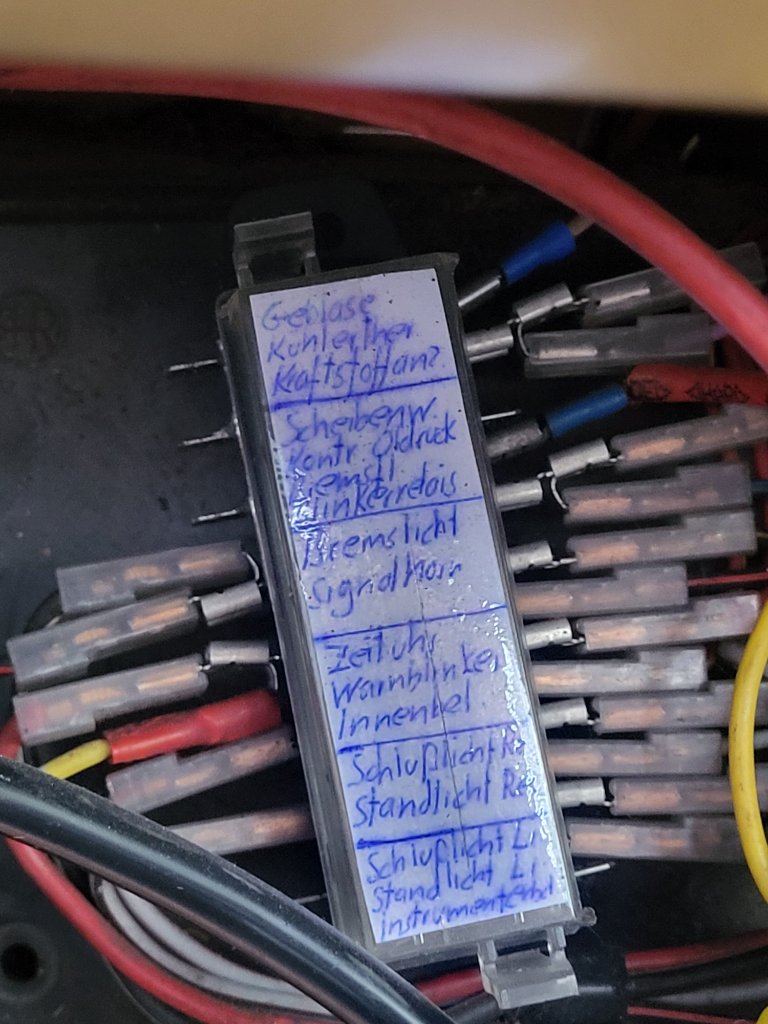 Gebläse
Kühlerther
Kraftstoffanz
Scheibenw
Kontr Öldruck
Bremsl
Blinkerrelais
Bremslicht
Signalhorn
Zeituhr
Warnblinker
Innenbel
Schlußlicht Re
Standlicht Re
Schlußlicht Li
Standlicht Li
Instrumentenbel